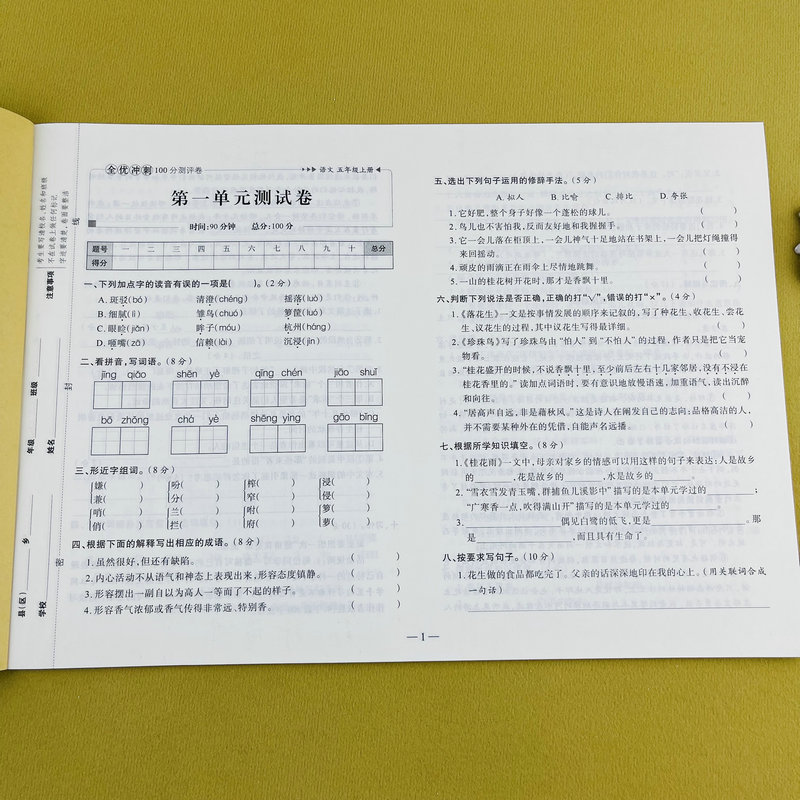 全优冲刺100分测评卷
▸▸▸ 语文 五年级上册◂
第一单元测试卷
时间:90分钟 总分:100分
题号 一 二 三 四 五 六 七 八 九 十 总分
得分
一、下列加点字的读音有误的一项是( )。(2分)
A. 斑驳(bó) 清澄(chéng) 摇落(luò)
B. 细腻(lì) 雏鸟(chú) 箩筐(luó)
C. 眼睑(jiǎn) 眸子(móu) 杭州(háng)
D. 咂嘴(zā) 信赖(lài) 沉浸(jìn)
二、看拼音,写词语。(8分)
jīng qiǎo shēn yè qīng chén jiāo shuǐ
bō zhǒng chá yè shēng yìng gāo bǐng
三、形近字组词。(8分)
嫌( ) 吩( ) 榨( ) 浸( )
兼( ) 分( ) 窄( ) 侵( )
哨( ) 兰( ) 咐( ) 箩( )
俏( ) 拦( ) 府( ) 萝( )
四、根据下面的解释写出相应的成语。(8分)
1. 虽然很好,但还有缺陷。 ( )
2. 内心活动不从语气和神态上表现出来,形容态度镇静。 ( )
3. 形容摆出一副自以为高人一等而了不起的样子。 ( )
4. 形容香气浓郁或香气传得非常远、特别香。 ( )
五、选出下列句子运用的修辞手法。(5分)
A. 拟人 B. 比喻 C. 排比 D. 夸张
1. 它好肥,整个身子好像一个蓬松的球儿。 ( )
2. 鸟儿也不害怕我,反而友好地和我握握手。 ( )
3. 它一会儿落在柜顶上,一会儿神气十足地站在书架上,一会儿把灯绳撞得
来回摇动。 ( )
4. 顽皮的雨滴正在雨伞上尽情地跳舞。 ( )
5. 一山的桂花树开花时,那才是香飘十里。 ( )
六、判断下列说法是否正确,正确的打“√”,错误的打“×”。(4分)
1.《落花生》一文是按事情发展的顺序来记叙的,写了种花生、收花生、尝花
生、议花生的过程,其中议花生写得最详细。 ( )
2.《珍珠鸟》写了珍珠鸟由“怕人”到“不怕人”的过程,作者只是把它当宠
物看。 ( )
3.“桂花盛开的时候,不说香飘十里,至少前后左右十几家邻居,没有不浸在
桂花香里的。”读加点词语时,要有意识地放慢语速,加重语气,读出沉醉
和向往。 ( )
4.“居高声自远,非是藉秋风。”这是诗人在阐发自己的志向:品格高洁的人,
并不需要某种外在的凭借,自能声名远播。 ( )
七、根据所学知识填空。(8分)
1.《桂花雨》一文中,母亲对家乡的情感可以用这样的句子来表达:人是故乡
的______,花是故乡的______,水是故乡的______。
2.“雪衣雪发青玉嘴,群捕鱼儿溪影中”描写的是本单元学过的______;
“广寒香一点,吹得满山开”描写的是本单元学过的______。
3.______偶见白鹭的低飞,更是______。那
是______,而且具有生命了。
八、按要求写句子。(10分)
1. 花生做的食品都吃完了。父亲的话深深地印在我的心上。(用关联词合成
一句话)
— 1 —
考生要写清校名、姓名和班级
不在试卷上做任何标记
字迹要清楚,卷面要整洁
注意事项
县(区)______乡______年级______班级______
学校______姓名______
密 封 线